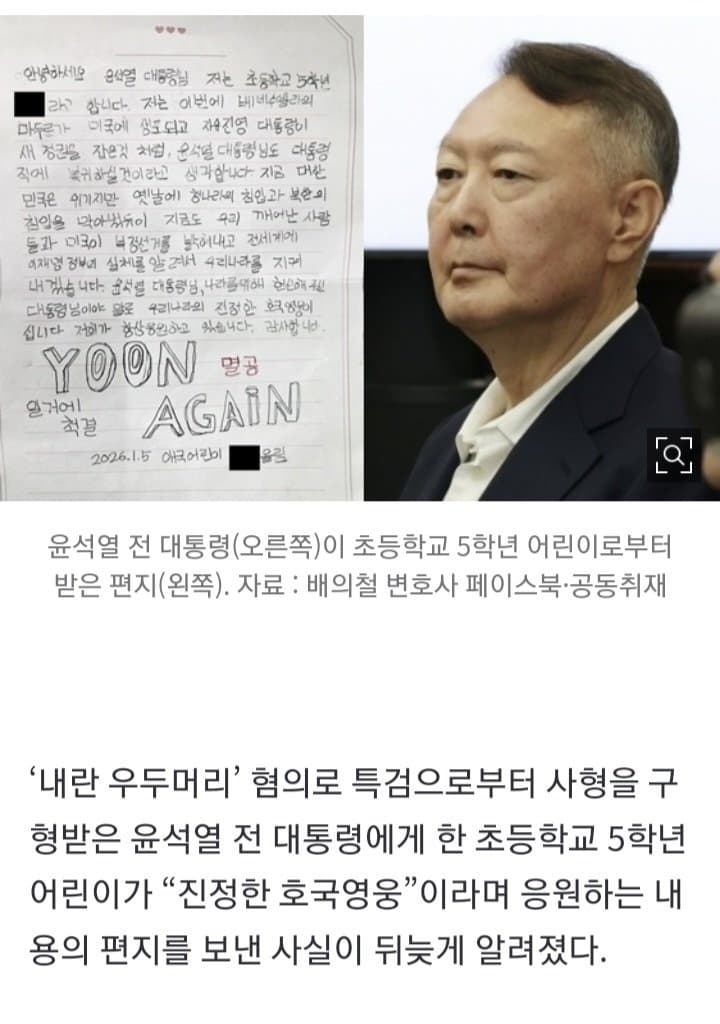 안녕하세요 윤석열 대통령님 저는 초등학교 5학년
라고 합니다. 저는 이번에 베네수엘라의
마두로가 미국에 생포되고 자유진영 대통령이
새 정권을 잡은것 처럼, 윤석열 대통령님도 대통령
직에 복귀하실것이라고 생각합니다 지금 대한
민국은 위기지만 옛날에 청나라의 침입과 북한의
침입을 막아 듯이 지금도 우리 깨어난 사람
들과 미국이 부정선거를 밝혀내고 전세계에
이재명 정부의 실체를 알려서 우리나라를 지켜
내겠습니다. 윤석열 대통령님, 나라를위해 헌신해
대통령님이야 말로 우리나라의 진정한 호국영웅이
십니다 저희가 항상응원하고 있습니다. 감사합니다.
YOON 멸공
일거에
척결 AGAIN
2026.1.5 애국어린이 올림
윤석열 전 대통령(오른쪽)이 초등학교 5학년 어린이로부터
받은 편지(왼쪽). 자료 : 배의철 변호사 페이스북·공동취재
‘내란 우두머리’ 혐의로 특검으로부터 사형을 구
형받은 윤석열 전 대통령에게 한 초등학교 5학년
어린이가 “진정한 호국영웅”이라며 응원하는 내
용의 편지를 보낸 사실이 뒤늦게 알려졌다.